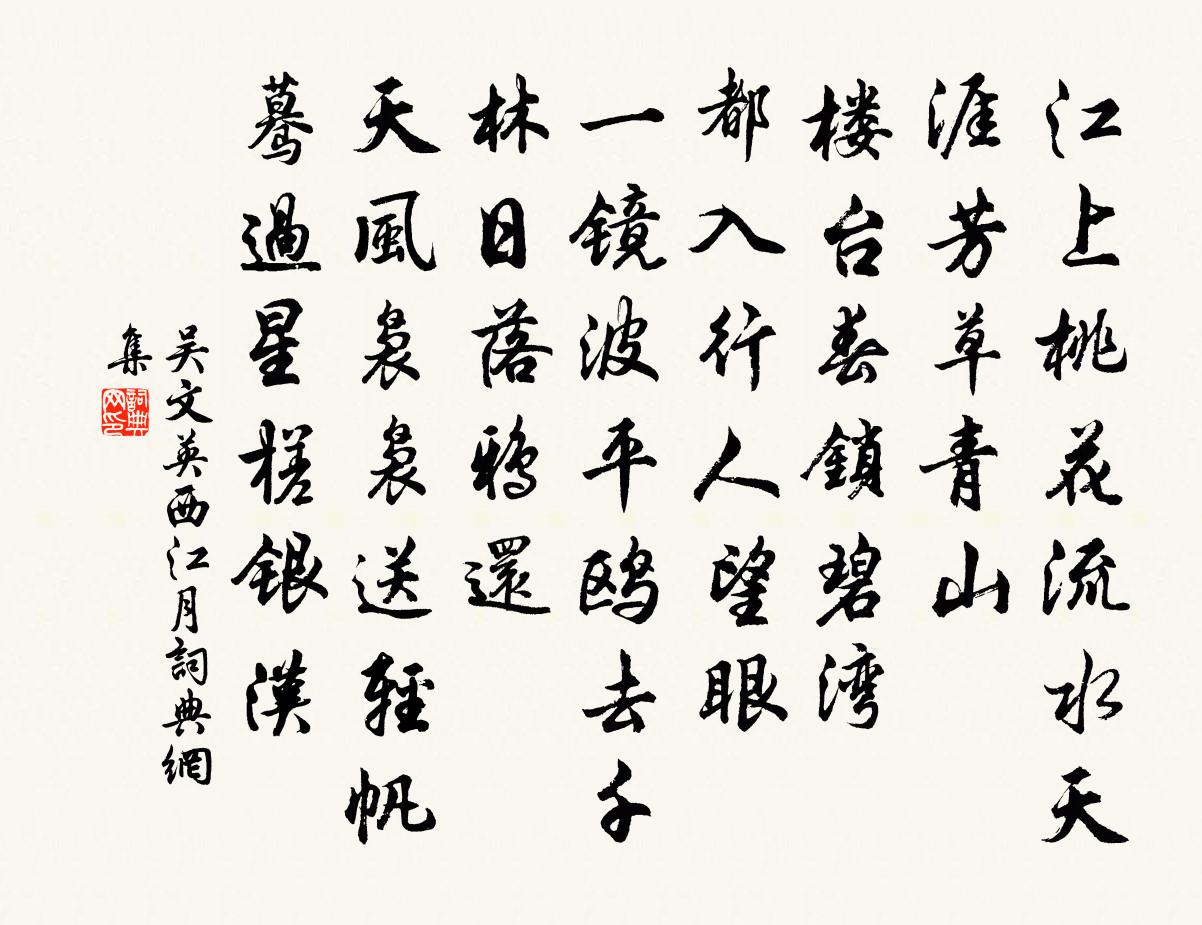 江上桃花流水天
涯芳草青山
楼台春鎖碧湾
都入行人望眼
一镜波平鸥去千
林日落鸦還
天風袅袅送輕帆
蓦過星槎銀漢
吴文英西江月詞典網
集
詞典网印